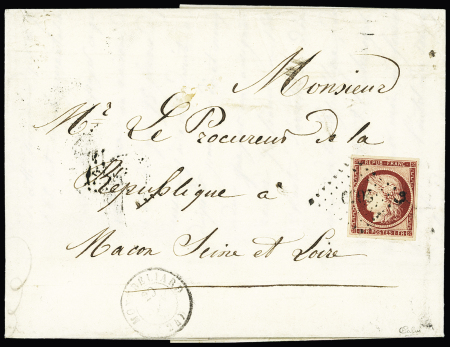 Monsieur
Mr Le Procureur de la
République a
Macon Seine et Loire
REPUB. FRANC.
1 FR. POSTES 1 FR.